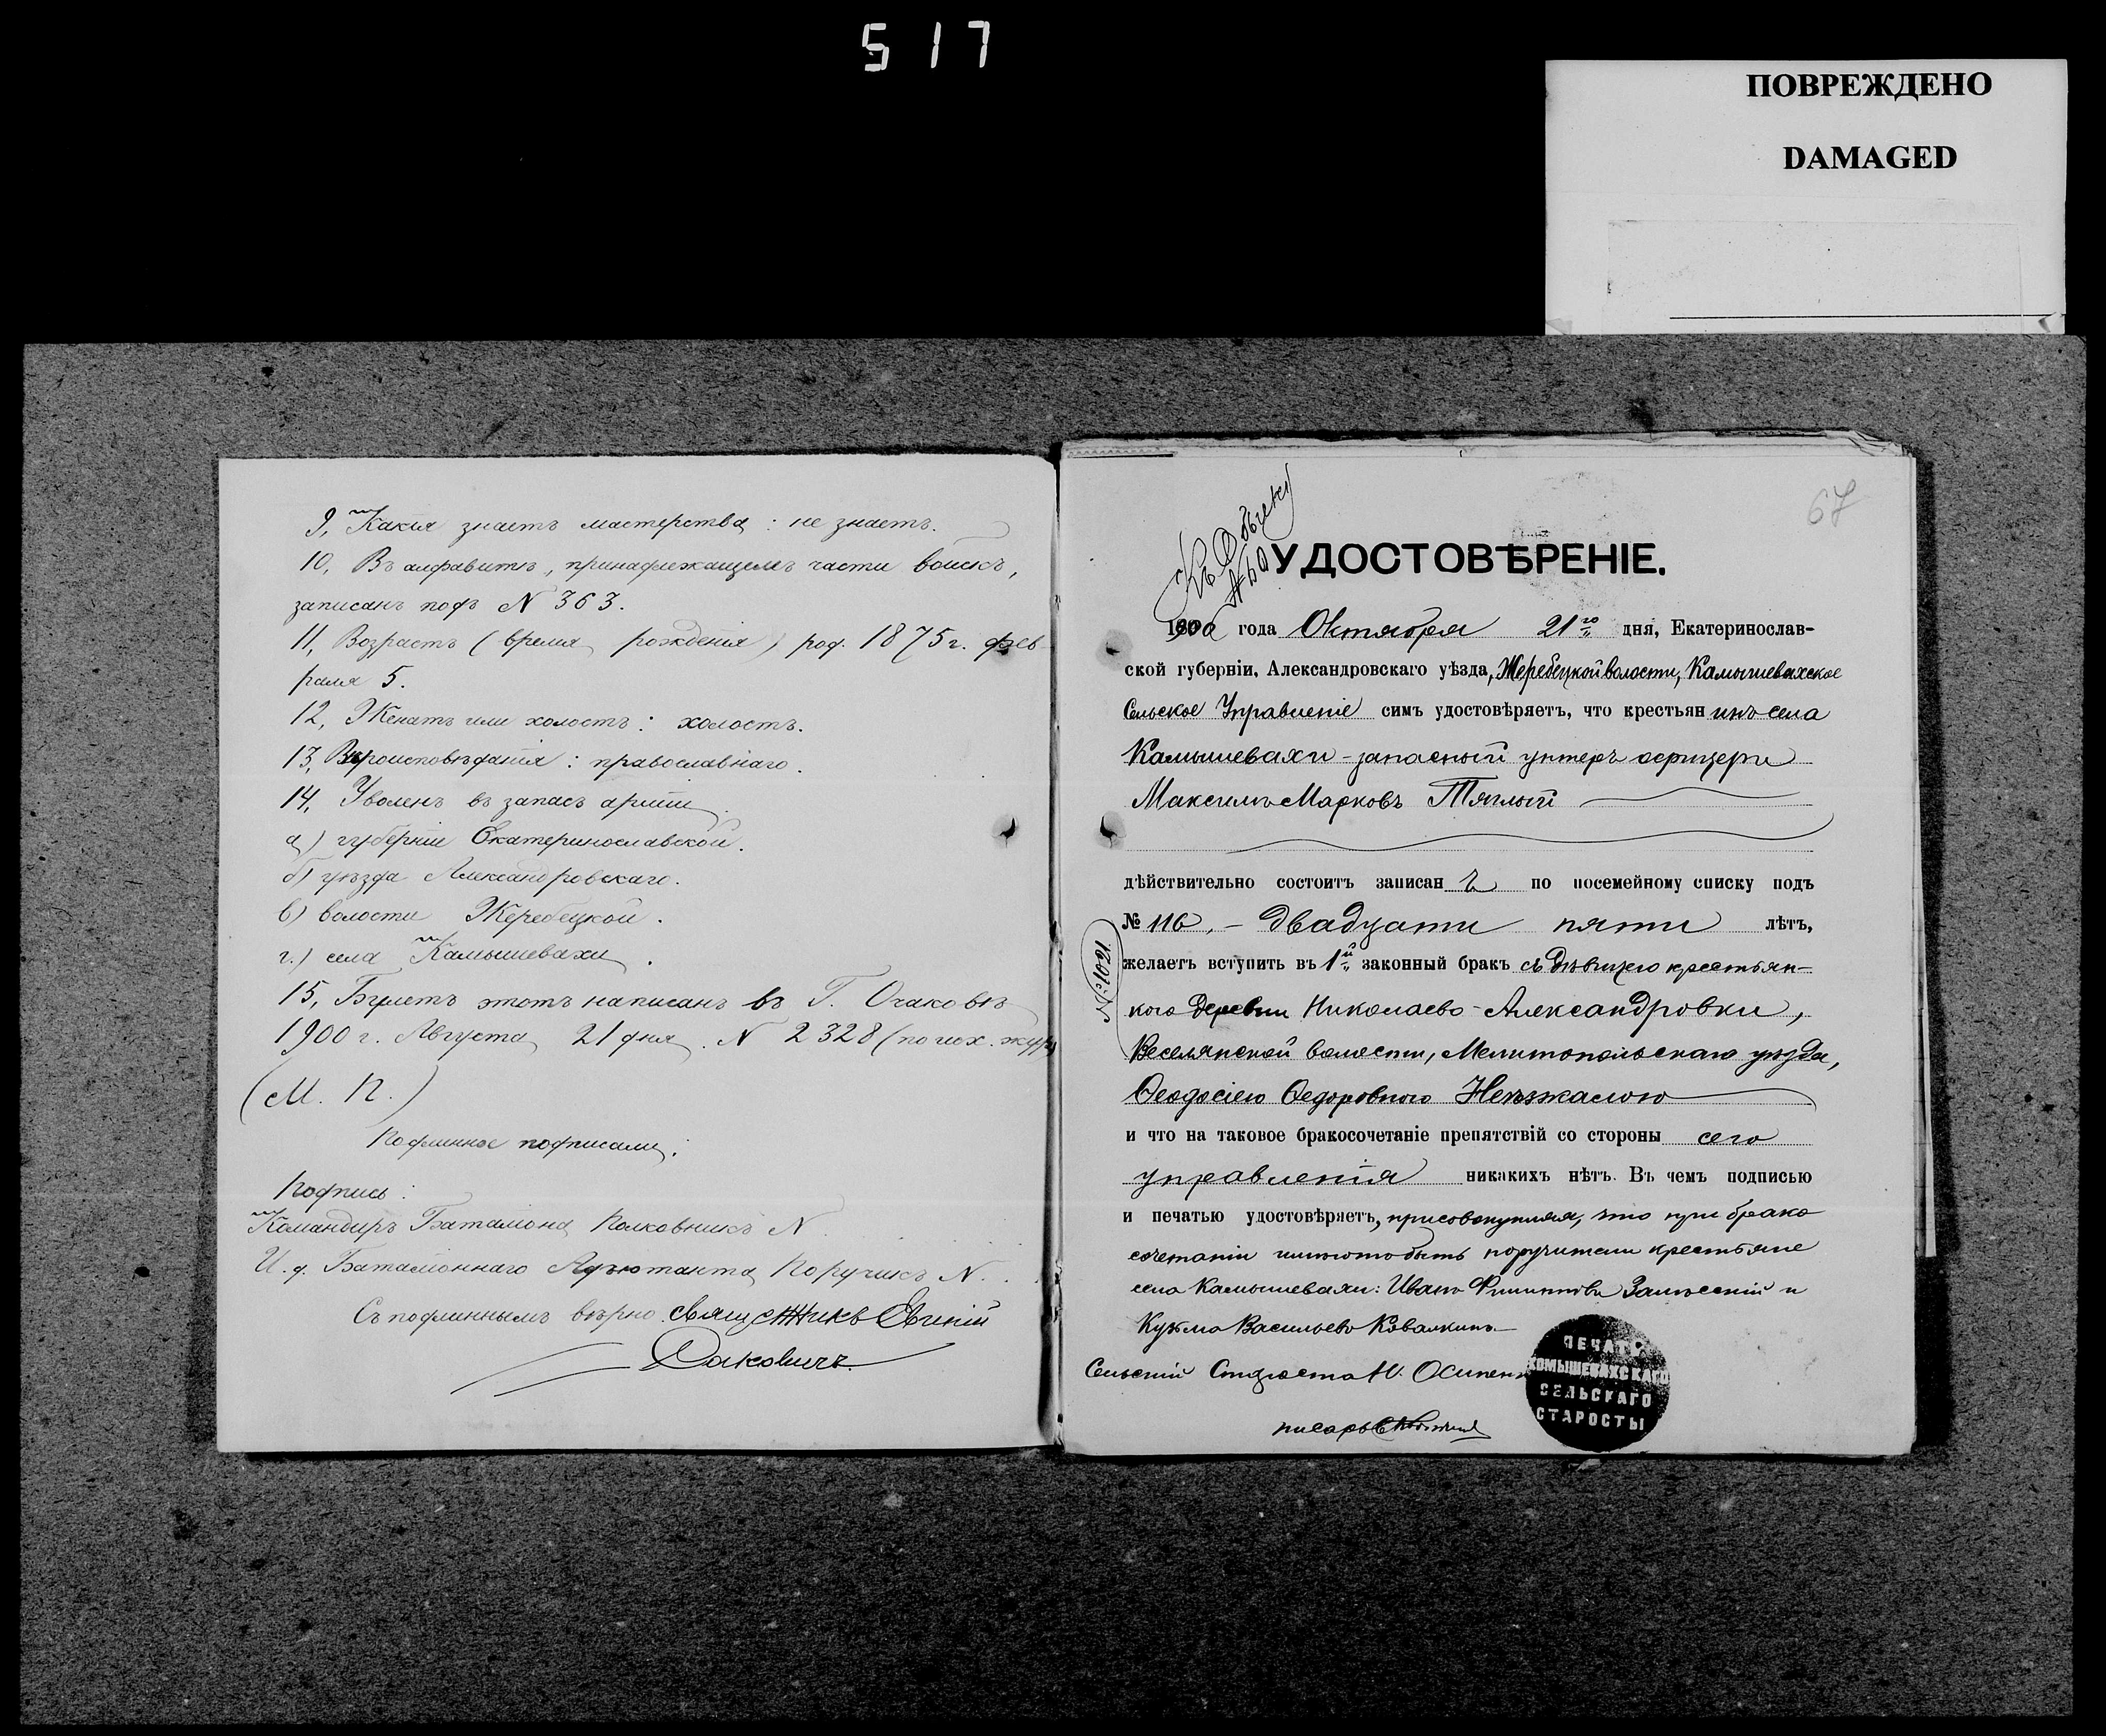 517
ПОВРЕЖДЕНО
DAMAGED
9, Какія знаетъ мастерства: не знаетъ.
10, Въ алфавитѣ, принадлежащемъ части войскъ,
записанъ подъ N 363.
11, Возрастъ (время рожденія) род. 1875 г. фев-
раля 5.
12, Женатъ или холостъ: холостъ.
13, Вѣроисповѣданія: православнаго.
14, Уволенъ въ запасъ арміи
а) губерніи Екатеринославской.
б) уѣзда Александровскаго.
в) волости Жеребецкой.
г.) села Камышевахи.
15, Билетъ этотъ написанъ въ Г. Очаковѣ
1900 г. Августа 21 дня. N 2328 (по исх. жур
(М. П.)
Подлинное подписали:
Подпись:
Командиръ Баталіона Полковникъ N
И. д. Баталіоннаго Адъютанта Поручикъ N.
Съ подлиннымъ вѣрно. Священникъ
67
Къ Обыску
№
УДОСТОВѢРЕНІЕ.
1900 года Октября 21го дня, Екатеринослав-
ской губерніи, Александровскаго уѣзда, Жеребецкой волости, Камышевахское
Сельское Управленіе симъ удостовѣряетъ, что крестьянинъ села
Камышевахи - запасный унтеръ офицеръ
Максимъ Марковъ Тяглый
дѣйствительно состоитъ записанъ по посемейному списку подъ
№ 116, - двадцати пяти лѣтъ,
желаетъ вступить въ 1й законный бракъ съ дѣвицею крестьян-
кою деревни Николаево-Александровки,
Веселянской волости, Мелитопольскаго уѣзда,
Ѳеодосіею Ѳедоровною Неѣжмалою
и что на таковое бракосочетаніе препятствій со стороны сего
управленія никакихъ нѣтъ. Въ чемъ подписью
и печатью удостовѣряетъ, присовокупляя, что при брако
сочетаніи имѣютъ быть поручители крестьяне
села Камышевахи: Иванъ Филипповъ Залѣсскій и
Кузьма Васильевъ Ковалкинъ
Сельскій Староста И. Осипенко
писарь
ПЕЧАТЬ
КОМЫШЕВАХСКАГО
СЕЛЬСКАГО
СТАРОСТЫ